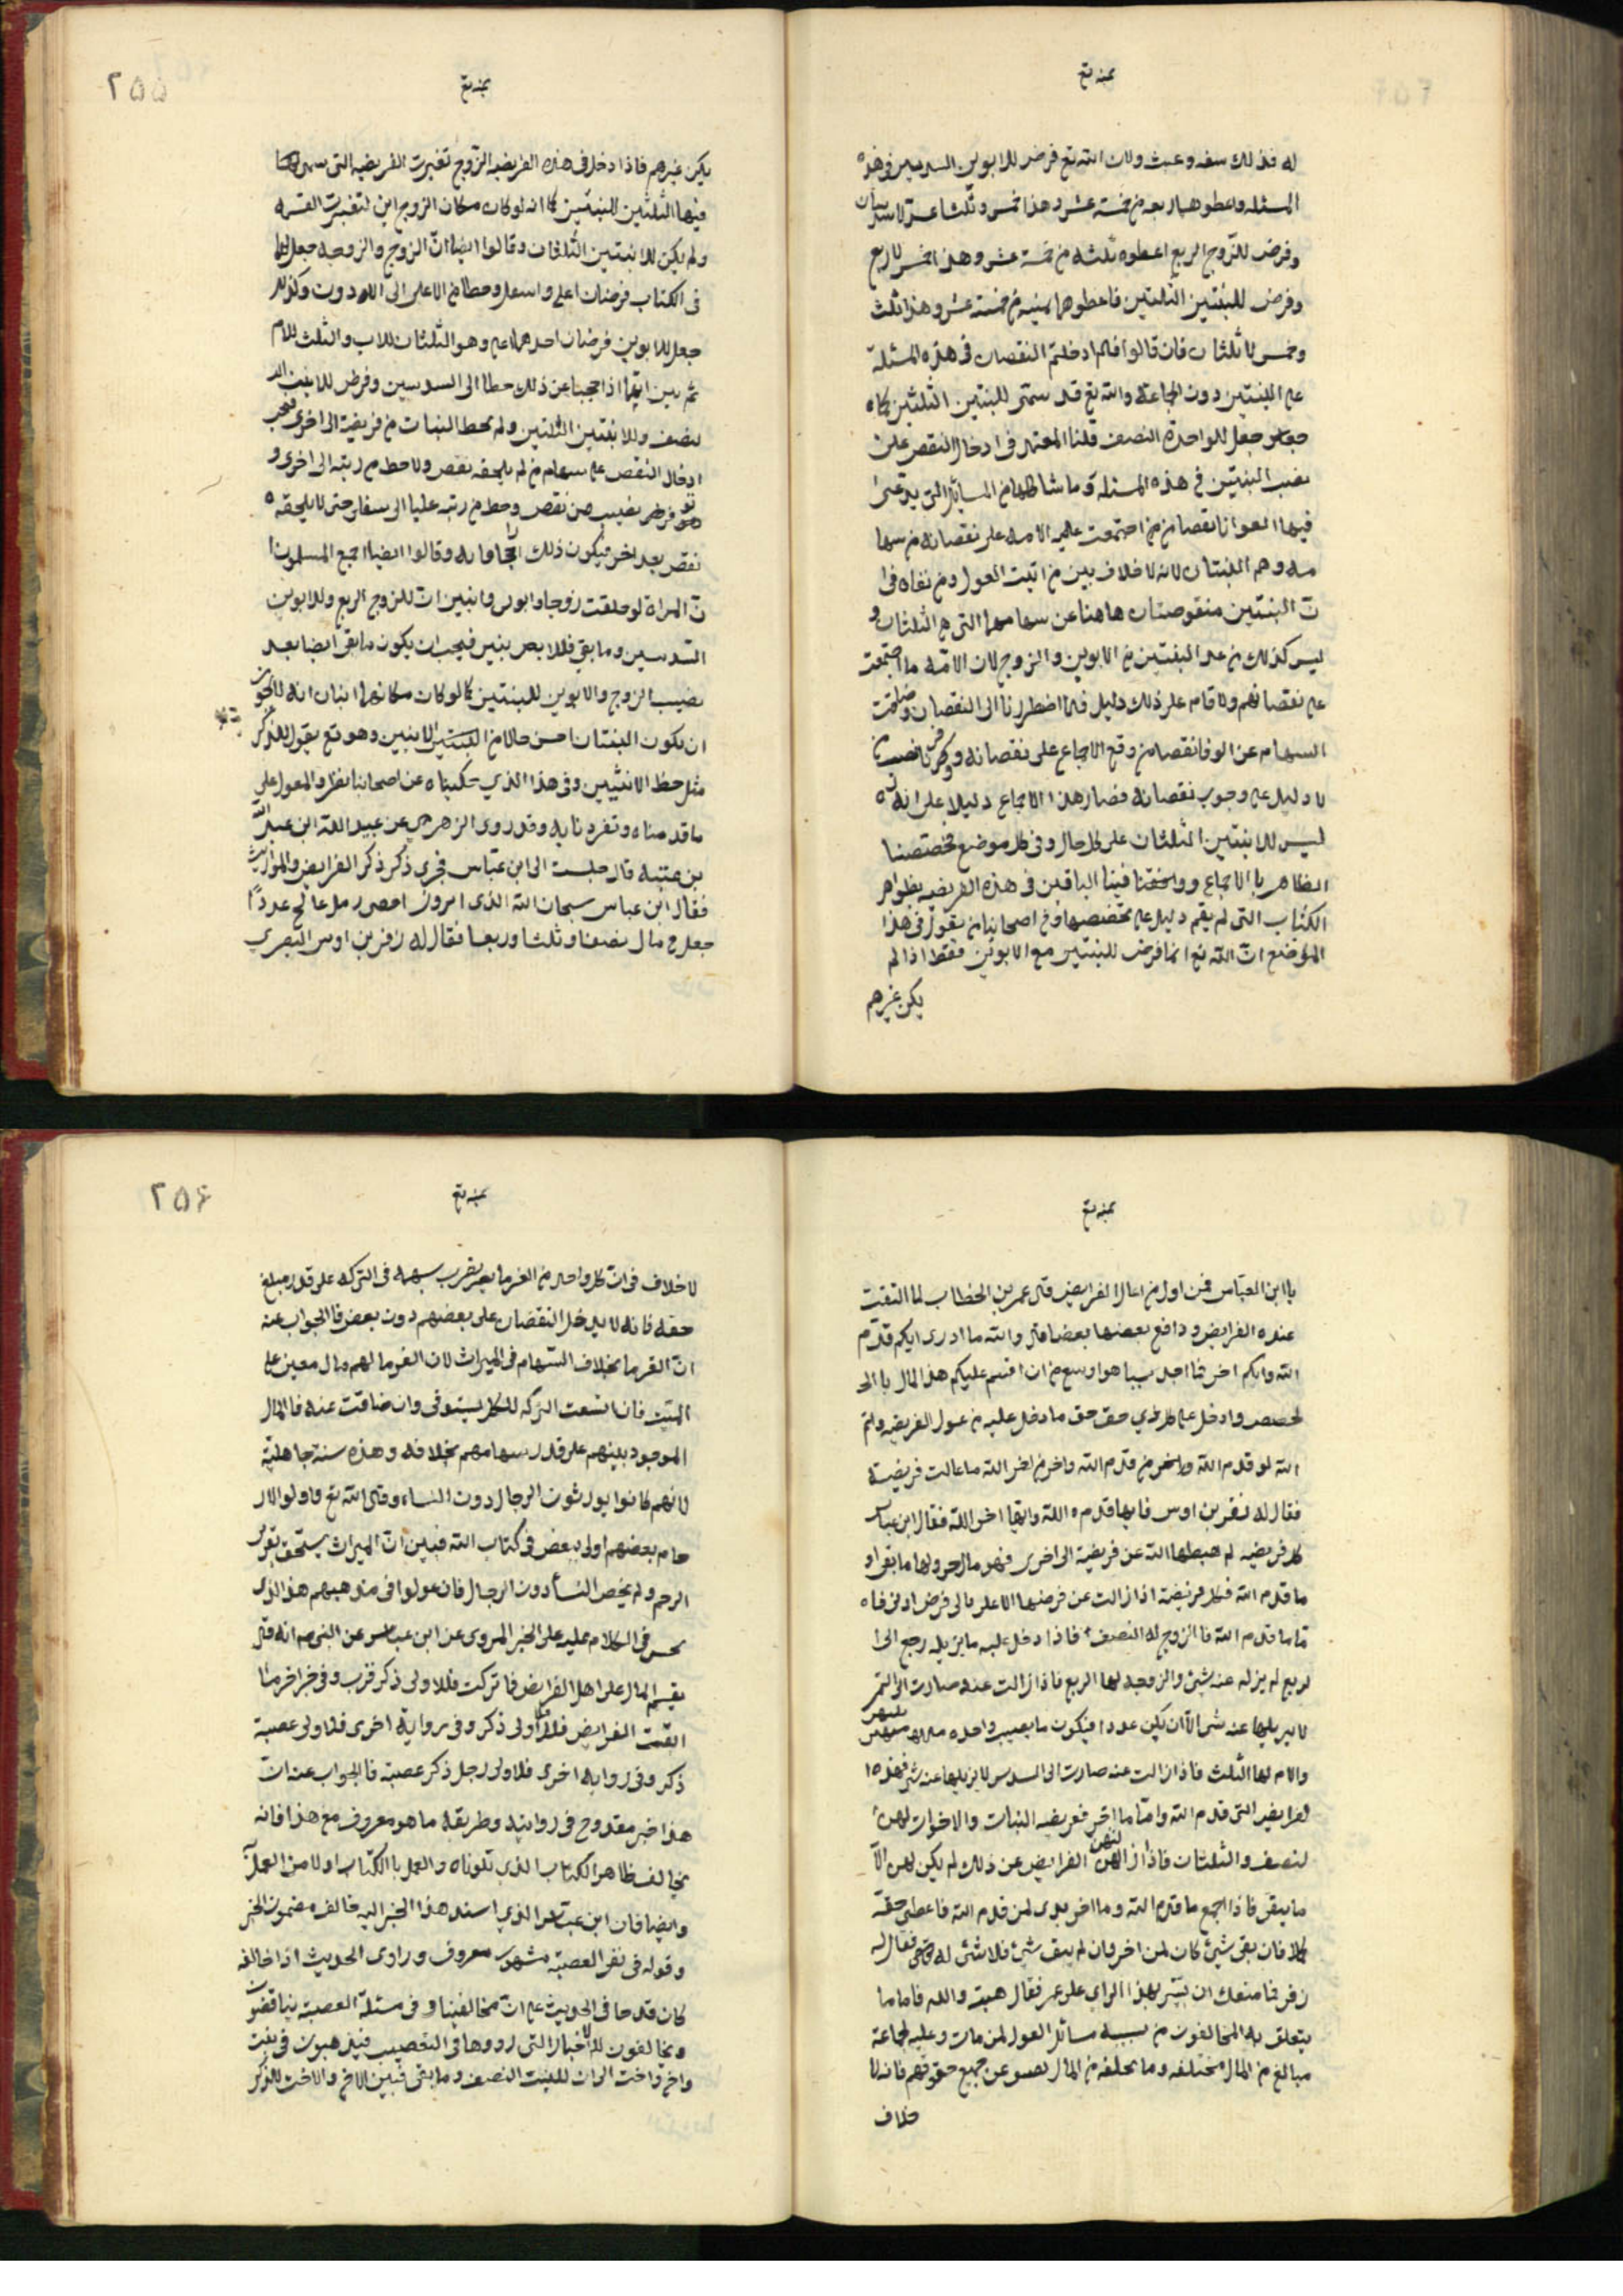 بمنه تع
له فذلك سفه وعبث ولان الله تع فرض للابوين السدسين في هذه
المسئله واعطوهما اربعه من خمسة عشر وهذا خمس وثلثا عشر لا سدسان
وفرض للزوج الربع اعطوه ثلثه من خمسة عشر وهذا خمس لا ربع
وفرض للبنتين الثلثين فاعطوهما ثمنيه من خمسة عشر وهذا ثلث
وخمس لا ثلثان فان قالوا فلم ادخلتم النقصان في هذه المسئلة
على البنتين دون الجماعة والله تع قد سمى للبنتين الثلثين كما
جعل للواحدة النصف قلنا المعتمد في ادخال النقص على
نصيب البنتين في هذه المسئلة وما شاكلها من المسائل التى يدعى
فيها العول انا نقصنا من اجتمعت عليه الامه على نقصانه من سها
مه وهم البنتان لانه لا خلاف بين من اثبت العول ومن نفاه فى ا
ن البنتين منقوصتان هاهنا عن سهامهما التى هي الثلثان و
ليس كذلك من عدا البنتين من الابوين والزوج لان الامة ما اجتمعت
على نقصانهم ولا قام على ذلك دليل فلما اضطررنا الى النقصان وضاقت
السهام عن الوفا نقصنا من وقع الاجماع على نقصانه ووفرنا نصيب من
لا دليل على وجوب نقصانه فصار هذا الاجماع دليلا على انه
ليس للابنتين الثلثان على كل حال وفى كل موضع فخصصنا
الظاهر بالاجماع ووفينا الباقين فى هذه الفريضه بظواهر
الكتاب التى لم يقم دليل على تخصيصها ومن اصحابنا من يقول فى هذا
الموضع ان الله تع انما فرض للبنتين مع الابوين فقط اذا لم
يكن غيرهم
٢٥٥
بمنه تع
يكن غيرهم فاذا دخل فى هذه الفريضه الزوج تغيرت الفريضه التى سمى
فيها الثلثين للبنتين كما انه لو كان مكان الزوج ابن لتغيرت القسمه
ولم يكن للابنتين الثلثان وقالوا ايضا ان الزوج والزوجه جعل لهما
فى الكتاب فرضان اعلى واسفل وحطا من الاعلى الى الادون وكذلك
جعل للابوين فرضان احدهما اعلى وهو الثلثان للاب والثلث للام
ثم بين انهما اذا حجبا عن ذلك حطا الى السدسين وفرض للابنت ال
نصف وللابنتين الثلثين ولم يحط البنات من فريضة الى اخرى فيجب
ادخال النقص على سهام من لم يلحقه نقص ولا حط من رتبه الى اخرى و
توفر نصيب من نقص وحط من رتبه عليا الى سفلى حتى لا يلحقه
نقص بعد اخر فيكون ذلك اجحافا به وقالوا ايضا اجمع المسلمون ا
ن المراة لو خلفت زوجا وابوين وابنين ان للزوج الربع وللابوين
السدسين وما بقى فللابنين فيجب ان يكون ما بقى ايضا بعد
نصيب الزوج والابوين للبنتين كما لو كان مكانهما ابنان انه لا يجوز
ان يكون البنتان احسن حالا من الابنين وهو تع يقول للذكر
مثل حظ الانثيين وفى هذا الذي حكيناه عن اصحابنا نظر والمعول على
ما قدمناه وتفردنا به وقد روى الزهري عن عبيد الله ابن عبد الله
بن عتبه قال جلست الى ابن عباس فجرى ذكر ذكر الفرايض والمواريث
فقال ابن عباس سبحان الله الذى امرون احصى رمل عالج عددا
جعل فى مال نصفا وثلثا وربعا فقال له زفر بن اوس البصرى
بمنه تع
يا ابن العباس فمن اول من اعال الفرايض قال عمر بن الخطاب لما التقت
عنده الفرايض ودافع بعضها بعضا فقال والله ما ادرى ايكم قدم
الله وايكم اخر فما اجد سببا هو اوسع من ان اقسم عليكم هذا المال بال
حصص وادخل على كل ذي حق حق ما دخل عليه من عول الفريضه وايم
الله لو قدم الله واخر من قدم الله واخر من اخر الله ما عالت فريضة
فقال له زفر بن اوس فايها قدمه الله وايها اخر الله فقال ابن عباس
كل فريضه لم يهبطها الله عن فريضة الى اخرى فهو
ما قدم الله فكل فريضة اذا زالت عن فرضها الاعلى فالى فرض ادنى فا
ما ما قدم الله فالزوج له النصف فاذا دخل عليه ما يزيله رجع الى ا
لربع لم يزله عنه شئ والزوجه لها الربع فاذا زالت عنه صارت الى الثمن
لا يزيلها عنه شئ الا ان يكن عددا فيكون ما يصيب واحده
والام لها الثلث فاذا زالت عنه صارت الى السدس لا يزيلها عنه شئ فهذه ا
لفرايض التى قدم الله واما ما اخر ففريضه البنات والاخوات لهن ا
لنصف والثلثان فاذا ازالتهن الفرايض عن ذلك لم يكن لهن الا
ما يبقى فاذا اجمع ما قدم الله وما اخر بدى لمن قدم الله فاعطى حقه
كملا فان بقى شئ كان لمن اخر وان لم يبق شئ فلا شئ له فقال له
زفر فما منعك ان تشير بهذا الراى على عمر فقال هيبة والله فاما ما
يتعلق به المخالفون من تسائل العول لمن مات وعليه لجماعة
مبالغ من المال مختلفه وما يخلفه من المال يعسر عن جميع حقوقهم فانه لا
خلاف
٢٥٦
بمنه تع
لا خلاف فى ان كل واحد من الغرما يضرب بسهمه فى التركه على قدر مبلغ
حقه فانه لا يدخل النقصان على بعضهم دون بعض فالجواب عنه
ان الغرما بخلاف السهام فى الميراث لان الغرما لهم مال معين على
الميت فان اتسعت التركه للكل يستوفى وان ضاقت عنه فالمال
الموجود بينهم على قدر سهامهم بخلافه وهذه سنة جاهلية
لانهم كانوا يورثون الرجال دون النساء وقال الله تع واولوا الار
حام بعضهم اولى ببعض فى كتاب الله فبين ان الميراث يستحق بقرب
الرحم ولم يخص النسأ دون الرجال فان عولوا فى مذهبهم هذا الذى
نحن فى الكلام عليه على الخبر المروى عن ابن عباس عن النبى صم انه قال
يقسم المال على اهل الفرايض فما تركت فللاولى ذكر قرب وفى خبر اخر ما ا
بقت الفرايض فلاولى ذكر وفى رواية اخرى فلاولى عصبة
ذكر وفى روايه اخرى فلاولى رجل ذكر عصبة فالجواب عنه ان
هذا خبر مقدوح فى روايته وطريقه ما هو معروف مع هذا فانه
مخالف ظاهر الكتاب الذي تلوناه والعمل بالكتاب اولا من العمل به
وايضا فان ابن عباس الذي اسند هذا الخبر اليه خالف مضمون الخبر
وقوله فى نفى العصبة مشهور معروف وراوى الحديث اذا خالفه
كان قدحا فى الحديث على ان مخالفينا فى مسئلة العصبة يناقضون
ويخالفون الاخبار التى رووها فى التعصيب فيذهبون فى بنت
واخ واخت الى ان للبنت النصف وما بقى فبين الاخ والاخت للذكر